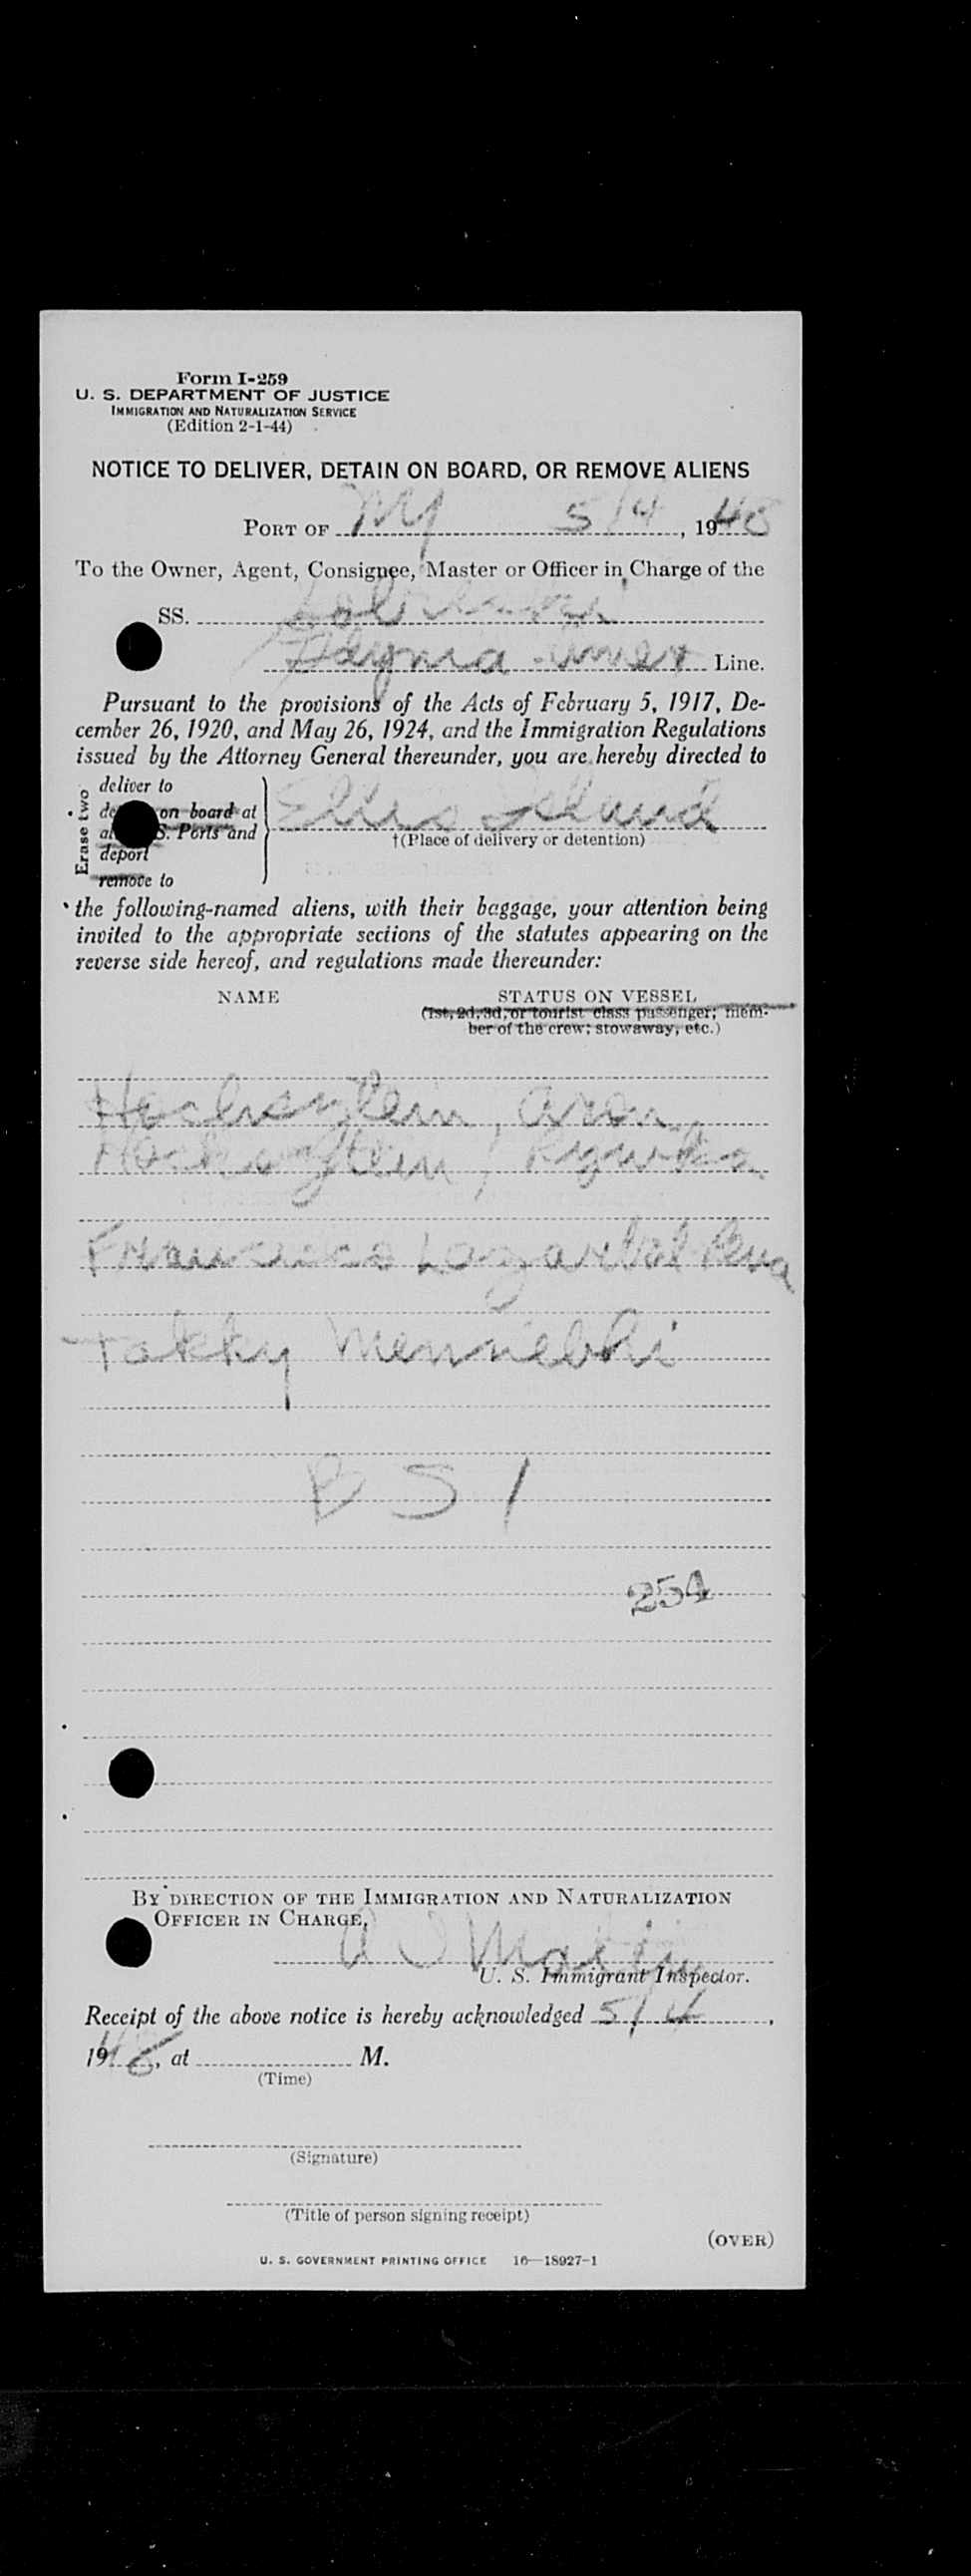 Form I-259
U. S. DEPARTMENT OF JUSTICE
IMMIGRATION AND NATURALIZATION SERVICE
(Edition 2-1-44)
NOTICE TO DELIVER, DETAIN ON BOARD, OR REMOVE ALIENS
PORT OF NY 5/4, 1948
To the Owner, Agent, Consignee, Master or Officer in Charge of the
SS.
Gdynia Amer Line.
Pursuant to the provisions of the Acts of February 5, 1917, De-
cember 26, 1920, and May 26, 1924, and the Immigration Regulations
issued by the Attorney General thereunder, you are hereby directed to
Erase two
deliver to
on board at
S. Ports and
deport
remove to
Ellis Island
†(Place of delivery or detention)
the following-named aliens, with their baggage, your attention being
invited to the appropriate sections of the statutes appearing on the
reverse side hereof, and regulations made thereunder:
NAME STATUS ON VESSEL
(1st, 2d, 3d, or tourist class passenger; mem-
ber of the crew; stowaway, etc.)
Hochsztein, Aron
Hochsztein, Rywka
Francisco
Takky Mennebhi
B S I
254
BY DIRECTION OF THE IMMIGRATION AND NATURALIZATION
OFFICER IN CHARGE,
U. S. Immigrant Inspector.
Receipt of the above notice is hereby acknowledged 5/4,
1948, at M.
(Time)
(Signature)
(Title of person signing receipt)
(OVER)
U. S. GOVERNMENT PRINTING OFFICE 16—18927-1